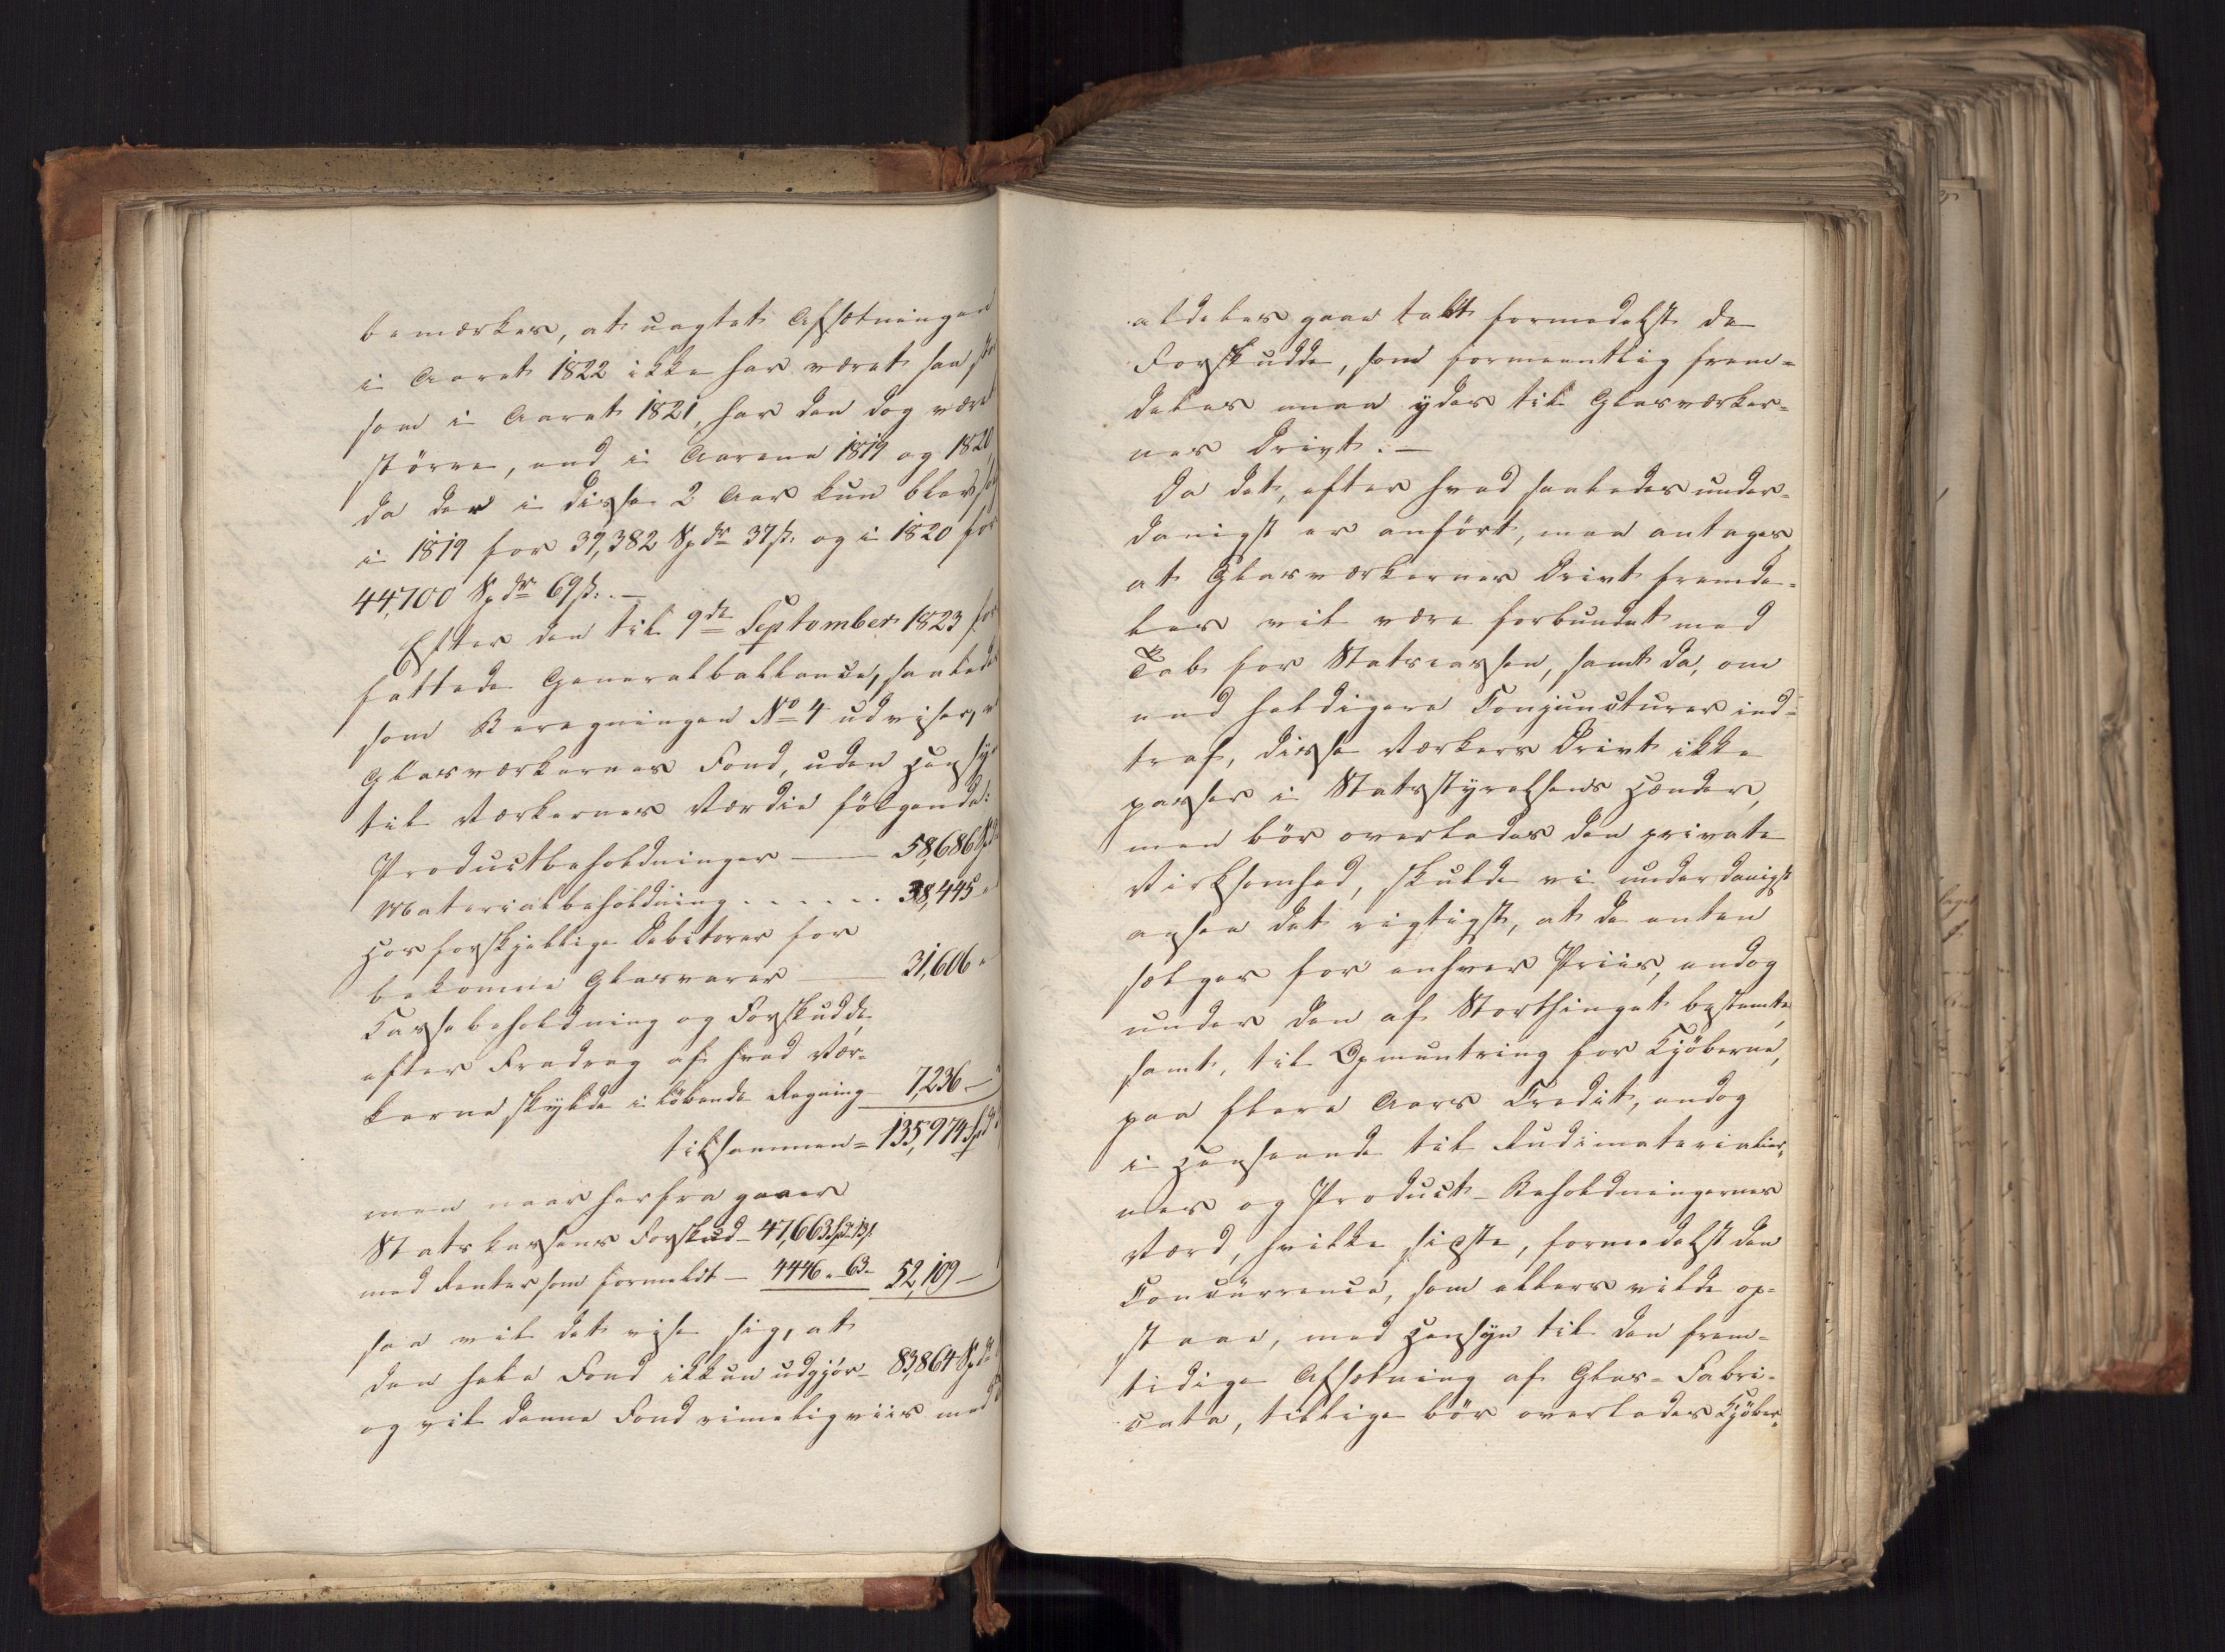 bemærkes, at uagtet Afsætningen
i Aaret 1822 ikke har været saa stor
som i Aaret 1821, har den dog været
större, end i Aarene 1819 og 1820,
da der i disse 2 Aar kun blev
i 1819 for 39,382 Spdr 37 s. og i 1820 for
44,700 Spdr 69 s. . —
Efter den til 9de September 1823 for
fattede Generalballance, saaledes
som Beregningen No 4 udviser,
Glasværkernes Fond, uden Hensyn
til Værkernes Værdie fölgende:
Productbeholdninger — 58,686 Spd
Materialbeholdning . . . . . . 38,445 "
Hos forskjellige Debitorer for
bekomne Glasvarer — 31,606 "
Cassebeholdning og Forskudde
efter Fradrag af hvad Vær-
kerne skylde i löbende Regning 7,236 —
tilsammen = 135,974 Spd
men naar herfra gaaer
Statskassens Forskud — 47,663 Spdr 13 s
med Renter som formeldt — 4446 " 63 " 52,109 —
saa vil det vise sig, at
den hele Fond ikkun udgjör — 83,864 Spdr
og vil denne Fond rimeligviis med
aldeles gaae tabt formedelst de
Forskudde, som formeentlig frem-
deles maae ydes til Glasværker-
nes Drivt. —
Da det, efter hvad saaledes under-
danigst er anfört, maa antages,
at Glasværkernes Drivt fremde-
les vil være forbundet med
Tab for Statscassen, samt da, om
end heldigere Conjuncturer ind-
traf, disse Værkers Drivt ikke
passer i Statsstyrelsens Hænder,
men bör overlades den private
Virksomhed, skulde vi underdanigst
ansee det rigtigst, at de enten
sælges for enhver Priis, endog
under den af Storthinget bestemte,
samt, til Opmuntring for Kjöberne,
paa flere Aars Credit, endog
i Henseende til Rudimaterialier-
nes og Product-Beholdningernes
Værd, hvilke sidste, formedelst den
Concurrence, som ellers vilde op-
staae, med Hensyn til den frem-
tidige Afsætning af Glas-Fabri-
cata, tillige bör overlades Kjöber-